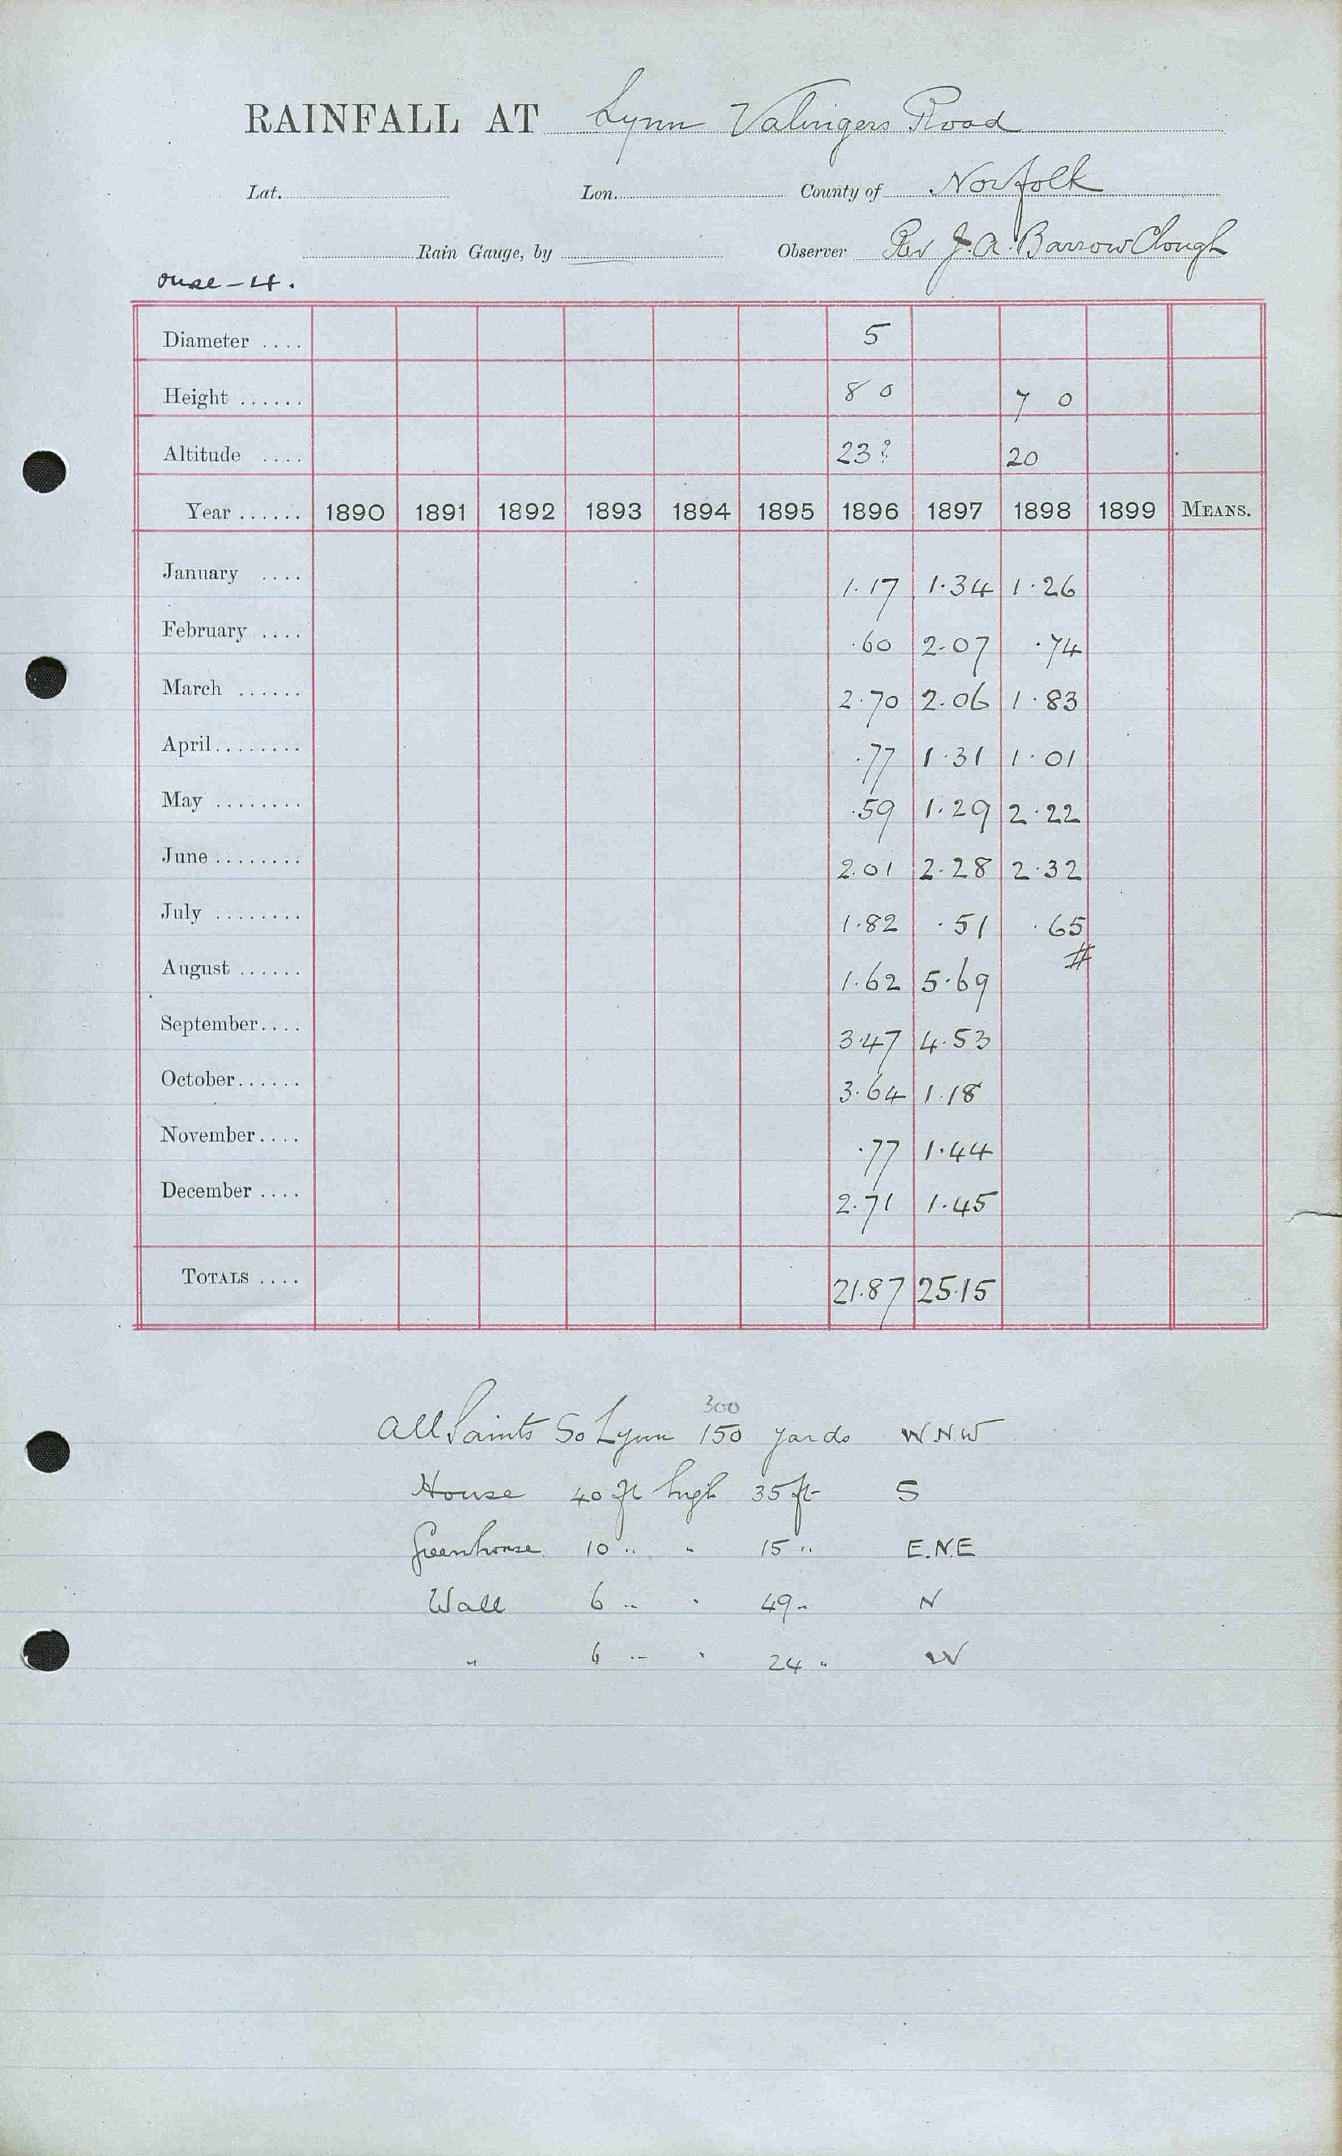 RAINFALL AT Lynn Valingers Road
Lat. Lon. County of Norfolk
Rain Gauge, by Observer Rev J. A. Barrow Clough
Ouse - 4.
Diameter .... 5
Height ...... 8 0 7 0
Altitude .... 23? 20
Year ...... 1890 1891 1892 1893 1894 1895 1896 1897 1898 1899 MEANS.
January .... 1.17 1.34 1.26
February .... .60 2.07 .74
March ...... 2.70 2.06 1.83
April ........ .77 1.31 1.01
May ........ .59 1.29 2.22
June ........ 2.01 2.28 2.32
July ........ 1.82 .51 .65
#
August ...... 1.62 5.69
September .... 3.47 4.53
October ...... 3.64 1.18
November .... .77 1.44
December .... 2.71 1.45
TOTALS .... 21.87 25.15
300
All Saints So Lynn 150 yards W.N.W
House 40 ft high 35 ft S
Greenhouse 10 " " 15 " E.N.E
Wall 6 " " 49 " N
" 6 " " 24 " W